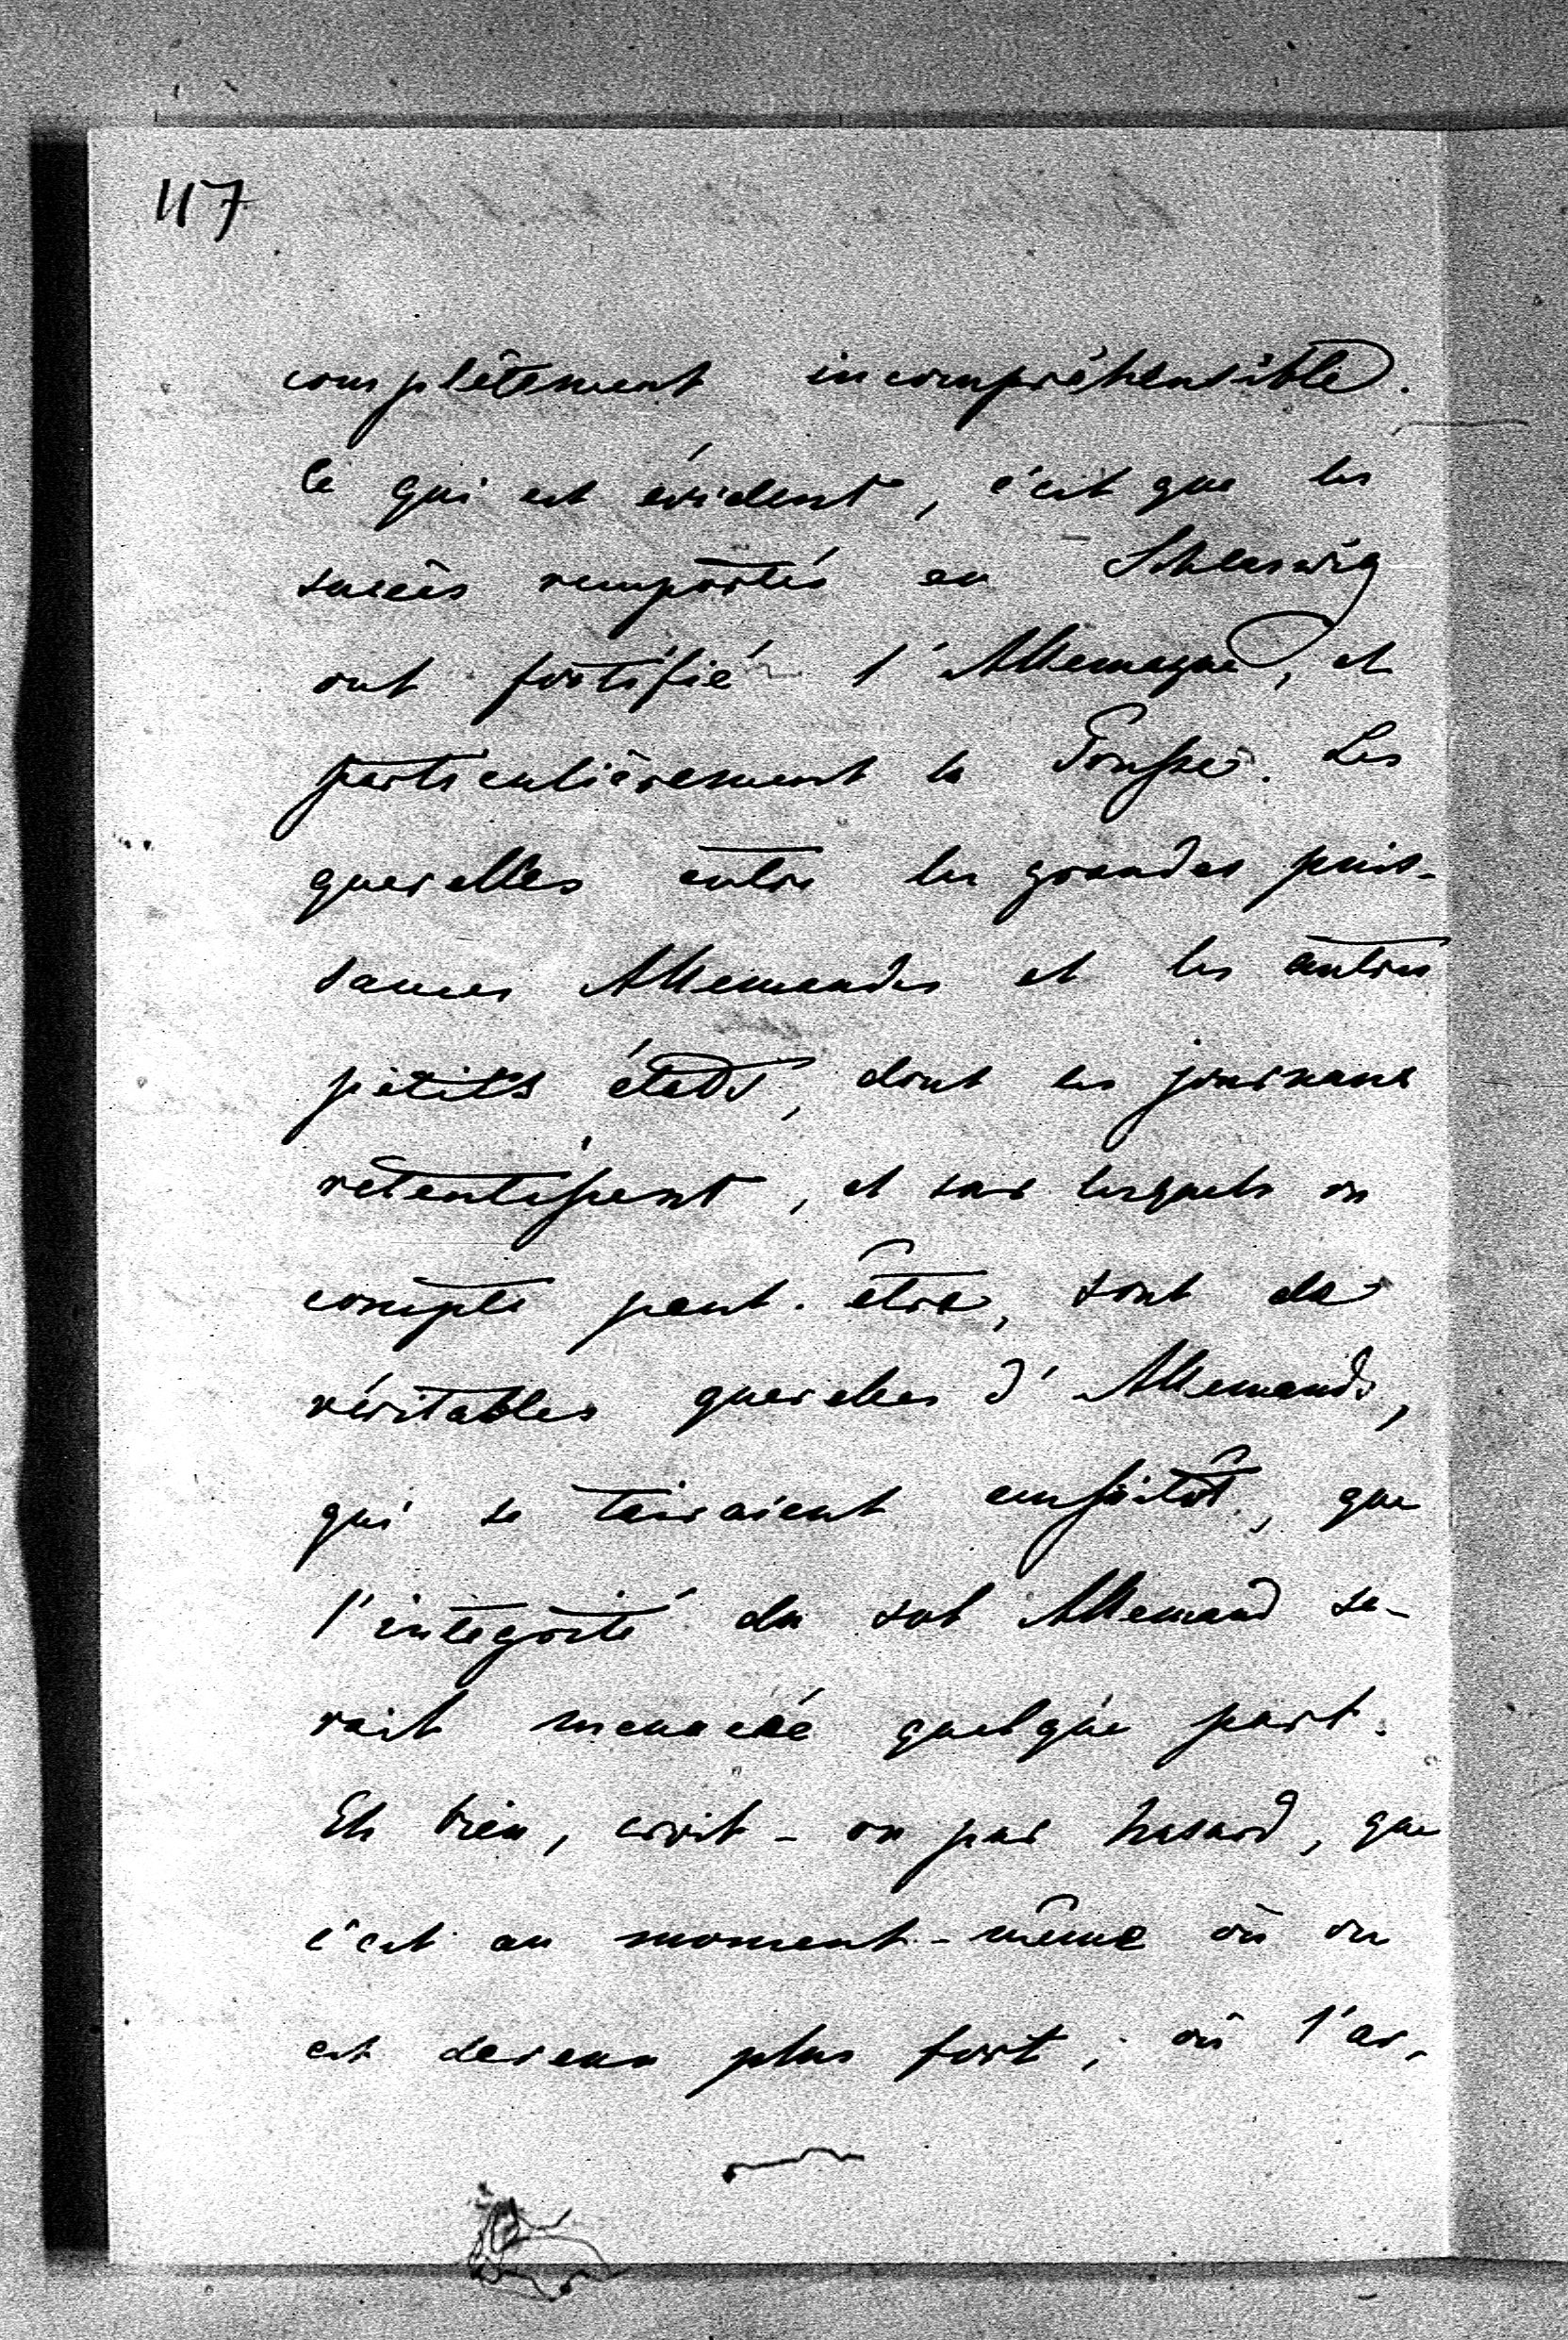 117
complêtement incompréhensible.
Ce qui est évident, c'est que les
succès remportés en Schleswig
ont fortifié l'Allemagne, et
particulièrement la Prusse. Les
querelles entre les grandes puis-
sances Allemandes et les autres
petits états, dont les journaux
retentissent, et sur lesquels on
compte peut-être, sont de
véritables querelles d'Allemands,
qui se tairaient aussitôt, que
l'intégrité du sol Allemand se-
rait menacée quelque part.
Eh bien, croit-on par hasard, que
c'est au moment-même où on
est devenu plus fort, où l'ar-